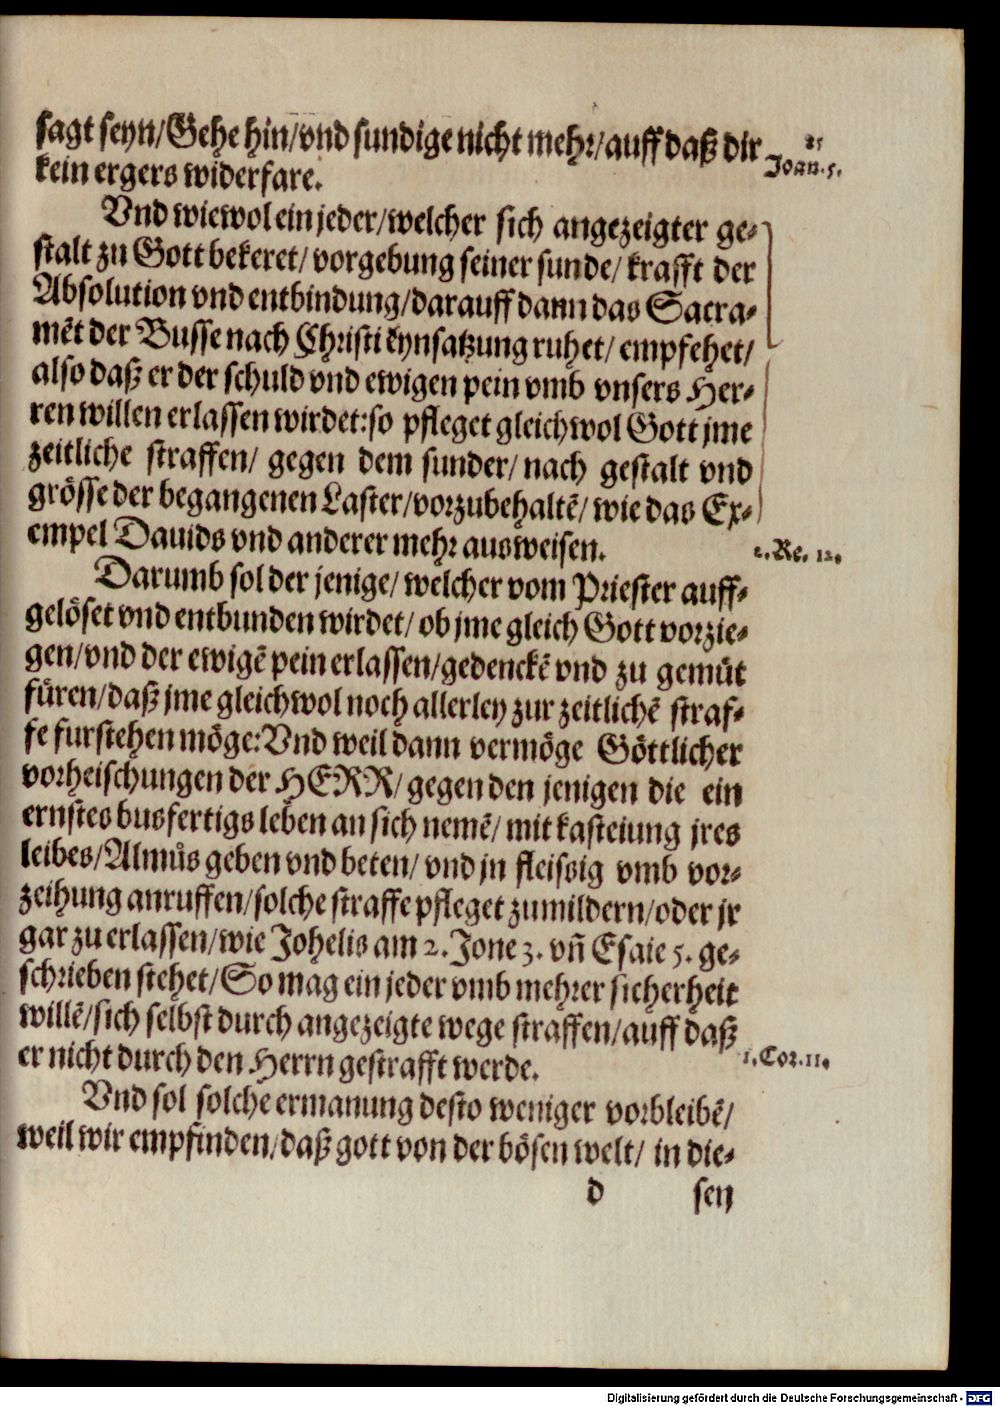 sagt seyn/Gehe hin/vnd sundige nicht mehr/auff daß dir
25
Joan. 5.
kein ergers widerfare.
Vnd wiewol ein jeder/welcher sich angezeigter ge-
stalt zu Gott bekeret/ vorgebung seiner sunde/ krafft der
Absolution vnd entbindung/darauff dann das Sacra-
mēt der Busse nach Christi eynsatzung ruhet/ empfehet/
also daß er der schuld vnd ewigen pein vmb vnsers Her-
ren willen erlassen wirdet:so pfleget gleichwol Gott jme
zeitliche straffen/ gegen dem sunder/ nach gestalt vnd
grösse der begangenen Laster/vorzubehaltē/ wie das Ex-
empel Dauids vnd anderer mehr ausweisen.
2. Re. 12.
Darumb sol der jenige/ welcher vom Priester auff-
gelöset vnd entbunden wirdet/ ob jme gleich Gott vorzie-
gen/vnd der ewigē pein erlassen/gedenckē vnd zu gemüt
füren/daß jme gleichwol noch allerley zur zeitlichē straf-
fe furstehen möge:Vnd weil dann vermöge Göttlicher
vorheischungen der HERR/ gegen den jenigen die ein
ernstes busfertigs leben an sich nemē/ mit kasteiung jres
leibes/Almůs geben vnd beten/ vnd jn fleissig vmb vor-
zeihung anruffen/solche straffe pfleget zumildern/oder jr
gar zu erlassen/wie Johelis am 2. Jone 3. vñ Esaie 5. ge-
schrieben stehet/So mag ein jeder vmb mehrer sicherheit
willē/sich selbst durch angezeigte wege straffen/auff daß
er nicht durch den Herrn gestrafft werde.
1. Cor. 11.
Vnd sol solche ermanung desto weniger vorbleibē/
weil wir empfinden/daß gott von der bösen welt/ in die-
d sen
Digitalisierung gefördert durch die Deutsche Forschungsgemeinschaft - DFG